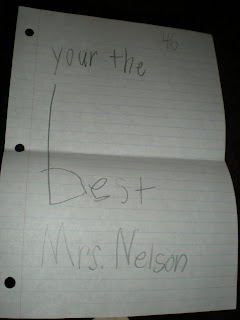 46
your the
best
Mrs. Nelson